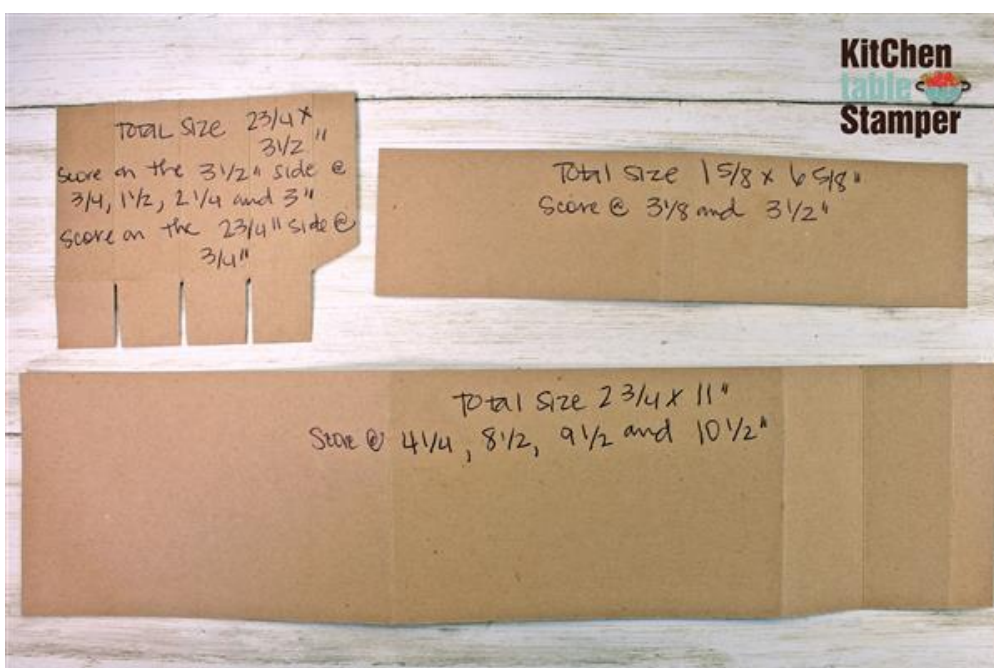 KitChen
table
Stamper
TOTAL SIZE 2 3/4 X
3 1/2"
Score on the 3 1/2" side @
3/4, 1 1/2, 2 1/4 and 3"
Score on the 2 3/4" side @
3/4"
Total size 1 5/8 x 6 5/8"
Score @ 3 1/8 and 3 1/2"
Total Size 2 3/4 x 11"
Score @ 4 1/4, 8 1/2, 9 1/2 and 10 1/2"